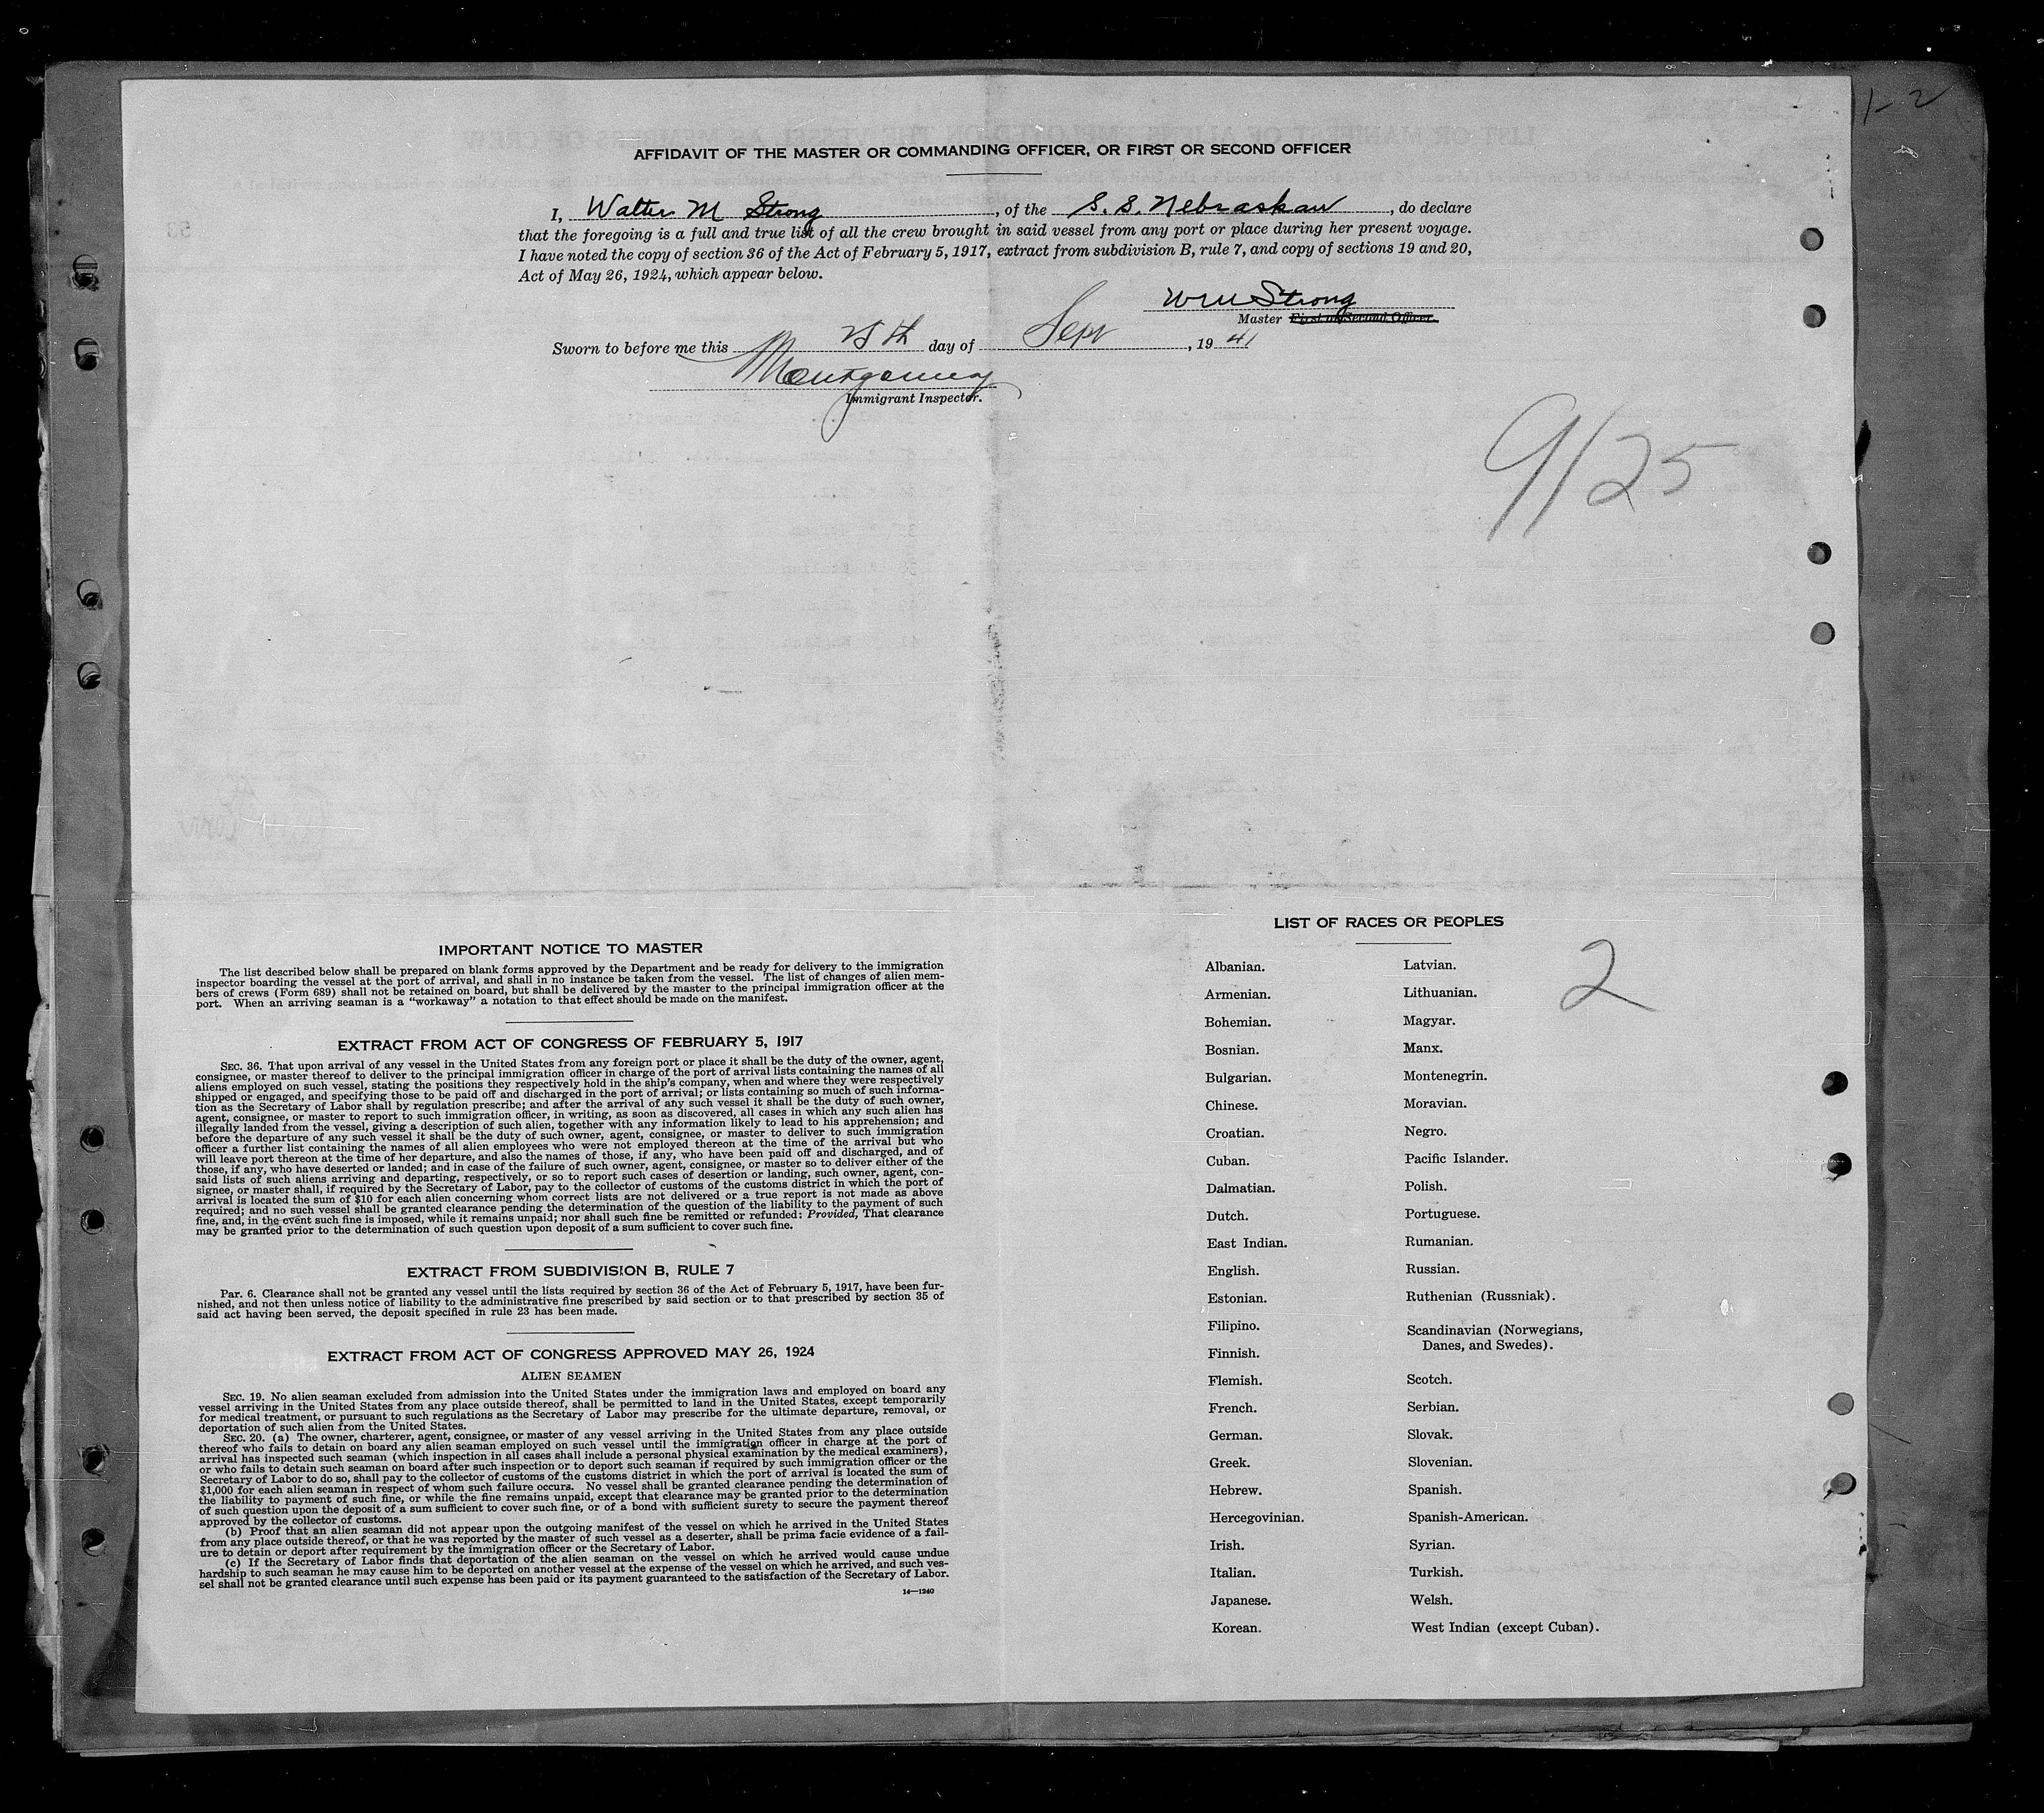 1-2
AFFIDAVIT OF THE MASTER OR COMMANDING OFFICER, OR FIRST OR SECOND OFFICER
I, Walter M Strong, of the S. S. Nebraskan, do declare
that the foregoing is a full and true list of all the crew brought in said vessel from any port or place during her present voyage.
I have noted the copy of section 36 of the Act of February 5, 1917, extract from subdivision B, rule 7, and copy of sections 19 and 20,
Act of May 26, 1924, which appear below.
WM Strong
Master First or Second Officer.
Sworn to before me this 25th day of Sept, 1941
Montgomery
Immigrant Inspector.
9/25
IMPORTANT NOTICE TO MASTER
The list described below shall be prepared on blank forms approved by the Department and be ready for delivery to the immigration
inspector boarding the vessel at the port of arrival, and shall in no instance be taken from the vessel. The list of changes of alien mem-
bers of crews (Form 689) shall not be retained on board, but shall be delivered by the master to the principal immigration officer at the
port. When an arriving seaman is a "workaway" a notation to that effect should be made on the manifest.
EXTRACT FROM ACT OF CONGRESS OF FEBRUARY 5, 1917
SEC. 36. That upon arrival of any vessel in the United States from any foreign port or place it shall be the duty of the owner, agent,
consignee, or master thereof to deliver to the principal immigration officer in charge of the port of arrival lists containing the names of all
aliens employed on such vessel, stating the positions they respectively hold in the ship's company, when and where they were respectively
shipped or engaged, and specifying those to be paid off and discharged in the port of arrival; or lists containing so much of such informa-
tion as the Secretary of Labor shall by regulation prescribe; and after the arrival of any such vessel it shall be the duty of such owner,
agent, consignee, or master to report to such immigration officer, in writing, as soon as discovered, all cases in which any such alien has
illegally landed from the vessel, giving a description of such alien, together with any information likely to lead to his apprehension; and
before the departure of any such vessel it shall be the duty of such owner, agent, consignee, or master to deliver to such immigration
officer a further list containing the names of all alien employees who were not employed thereon at the time of the arrival but who
will leave port thereon at the time of her departure, and also the names of those, if any, who have been paid off and discharged, and of
those, if any, who have deserted or landed; and in case of the failure of such owner, agent, consignee, or master so to deliver either of the
said lists of such aliens arriving and departing, respectively, or so to report such cases of desertion or landing, such owner, agent, con-
signee, or master shall, if required by the Secretary of Labor, pay to the collector of customs of the customs district in which the port of
arrival is located the sum of $10 for each alien concerning whom correct lists are not delivered or a true report is not made as above
required; and no such vessel shall be granted clearance pending the determination of the question of the liability to the payment of such
fine, and, in the event such fine is imposed, while it remains unpaid; nor shall such fine be remitted or refunded: Provided, That clearance
may be granted prior to the determination of such question upon deposit of a sum sufficient to cover such fine.
EXTRACT FROM SUBDIVISION B, RULE 7
Par. 6. Clearance shall not be granted any vessel until the lists required by section 36 of the Act of February 5, 1917, have been fur-
nished, and not then unless notice of liability to the administrative fine prescribed by said section or to that prescribed by section 35 of
said act having been served, the deposit specified in rule 23 has been made.
EXTRACT FROM ACT OF CONGRESS APPROVED MAY 26, 1924
ALIEN SEAMEN
SEC. 19. No alien seaman excluded from admission into the United States under the immigration laws and employed on board any
vessel arriving in the United States from any place outside thereof, shall be permitted to land in the United States, except temporarily
for medical treatment, or pursuant to such regulations as the Secretary of Labor may prescribe for the ultimate departure, removal, or
deportation of such alien from the United States.
SEC. 20. (a) The owner, charterer, agent, consignee, or master of any vessel arriving in the United States from any place outside
thereof who fails to detain on board any alien seaman employed on such vessel until the immigration officer in charge at the port of
arrival has inspected such seaman (which inspection in all cases shall include a personal physical examination by the medical examiners),
or who fails to detain such seaman on board after such inspection or to deport such seaman if required by such immigration officer or the
Secretary of Labor to do so, shall pay to the collector of customs of the customs district in which the port of arrival is located the sum of
$1,000 for each alien seaman in respect of whom such failure occurs. No vessel shall be granted clearance pending the determination of
the liability to payment of such fine, or while the fine remains unpaid, except that clearance may be granted prior to the determination
of such question upon the deposit of a sum sufficient to cover such fine, or of a bond with sufficient surety to secure the payment thereof
approved by the collector of customs.
(b) Proof that an alien seaman did not appear upon the outgoing manifest of the vessel on which he arrived in the United States
from any place outside thereof, or that he was reported by the master of such vessel as a deserter, shall be prima facie evidence of a fail-
ure to detain or deport after requirement by the immigration officer or the Secretary of Labor.
(c) If the Secretary of Labor finds that deportation of the alien seaman on the vessel on which he arrived would cause undue
hardship to such seaman he may cause him to be deported on another vessel at the expense of the vessel on which he arrived, and such ves-
sel shall not be granted clearance until such expense has been paid or its payment guaranteed to the satisfaction of the Secretary of Labor.
14—1240
LIST OF RACES OR PEOPLES
2
Albanian.
Armenian.
Bohemian.
Bosnian.
Bulgarian.
Chinese.
Croatian.
Cuban.
Dalmatian.
Dutch.
East Indian.
English.
Estonian.
Filipino.
Finnish.
Flemish.
French.
German.
Greek.
Hebrew.
Hercegovinian.
Irish.
Italian.
Japanese.
Korean.
Latvian.
Lithuanian.
Magyar.
Manx.
Montenegrin.
Moravian.
Negro.
Pacific Islander.
Polish.
Portuguese.
Rumanian.
Russian.
Ruthenian (Russniak).
Scandinavian (Norwegians,
Danes, and Swedes).
Scotch.
Serbian.
Slovak.
Slovenian.
Spanish.
Spanish-American.
Syrian.
Turkish.
Welsh.
West Indian (except Cuban).